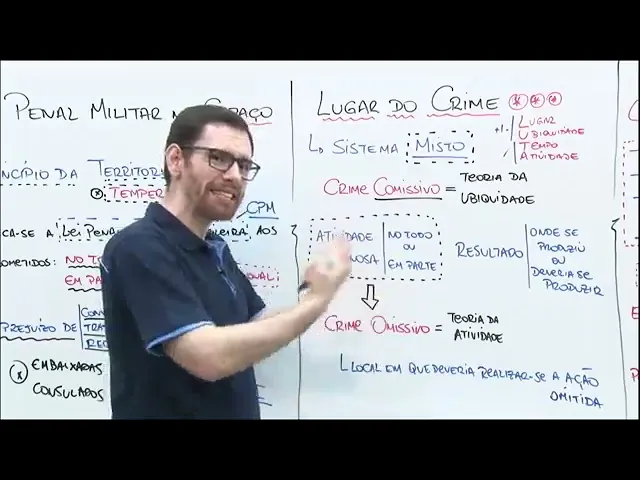 PENAL MILITAR
PRINCÍPIO DA TERRITORI
* TEMPER
CPM
CA-SE A LEI PENA EIRA AOS
OMETIDOS: NO T
EM PA ONAL
PREJUÍZO DE
CON
TRA
REG
* EMBAIXADAS
CONSULADOS
LUGAR DO CRIME ***
LUGAR
UBIQUIDADE
TEMPO
ATIVIDADE
SISTEMA MISTO
CRIME COMISSIVO = TEORIA DA
UBIQUIDADE
ATIVIDADE
NOSA
NO TODO
OU
EM PARTE
RESULTADO
ONDE SE
PRODUZIU
OU
DEVERIA SE
PRODUZIR
CRIME OMISSIVO = TEORIA DA
ATIVIDADE
LOCAL EM QUE DEVERIA REALIZAR-SE A AÇÃO
OMITIDA